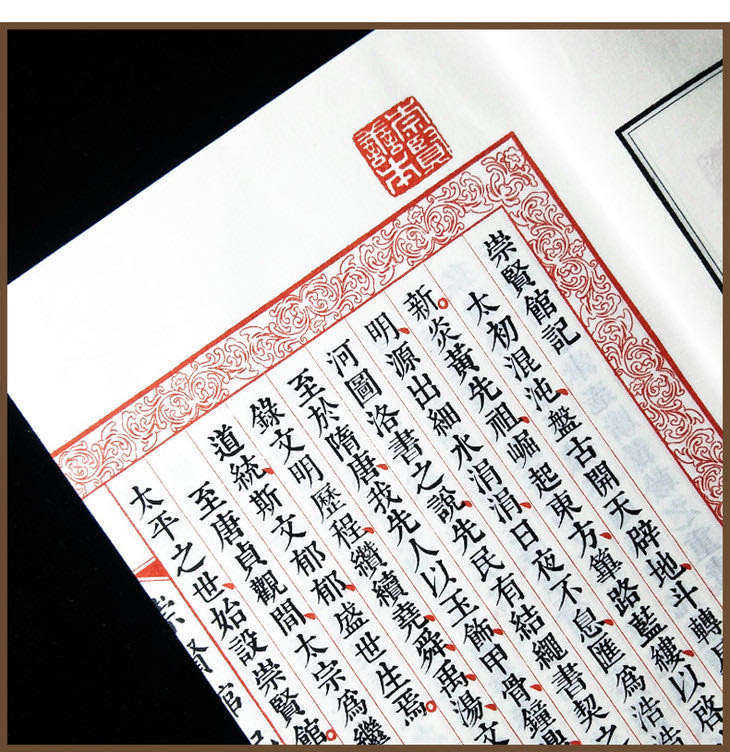 崇賢譱本
崇賢館記
太初混沌、盤古開天辟地、斗轉
新。炎黃先祖、崛起東方、篳路藍縷、以啓
明、源出細水涓涓、日夜不息、匯爲浩浩
河圖洛書之說、先民有結繩書契之
至於隋唐、我先人以玉飾、甲骨、鐘鼎
錄文明歷程、纘續堯、舜、禹、湯、文
道統、斯文郁郁、盛世生焉。
至唐貞觀間、太宗爲繼
太平之世、始設崇賢館。
崇賢館